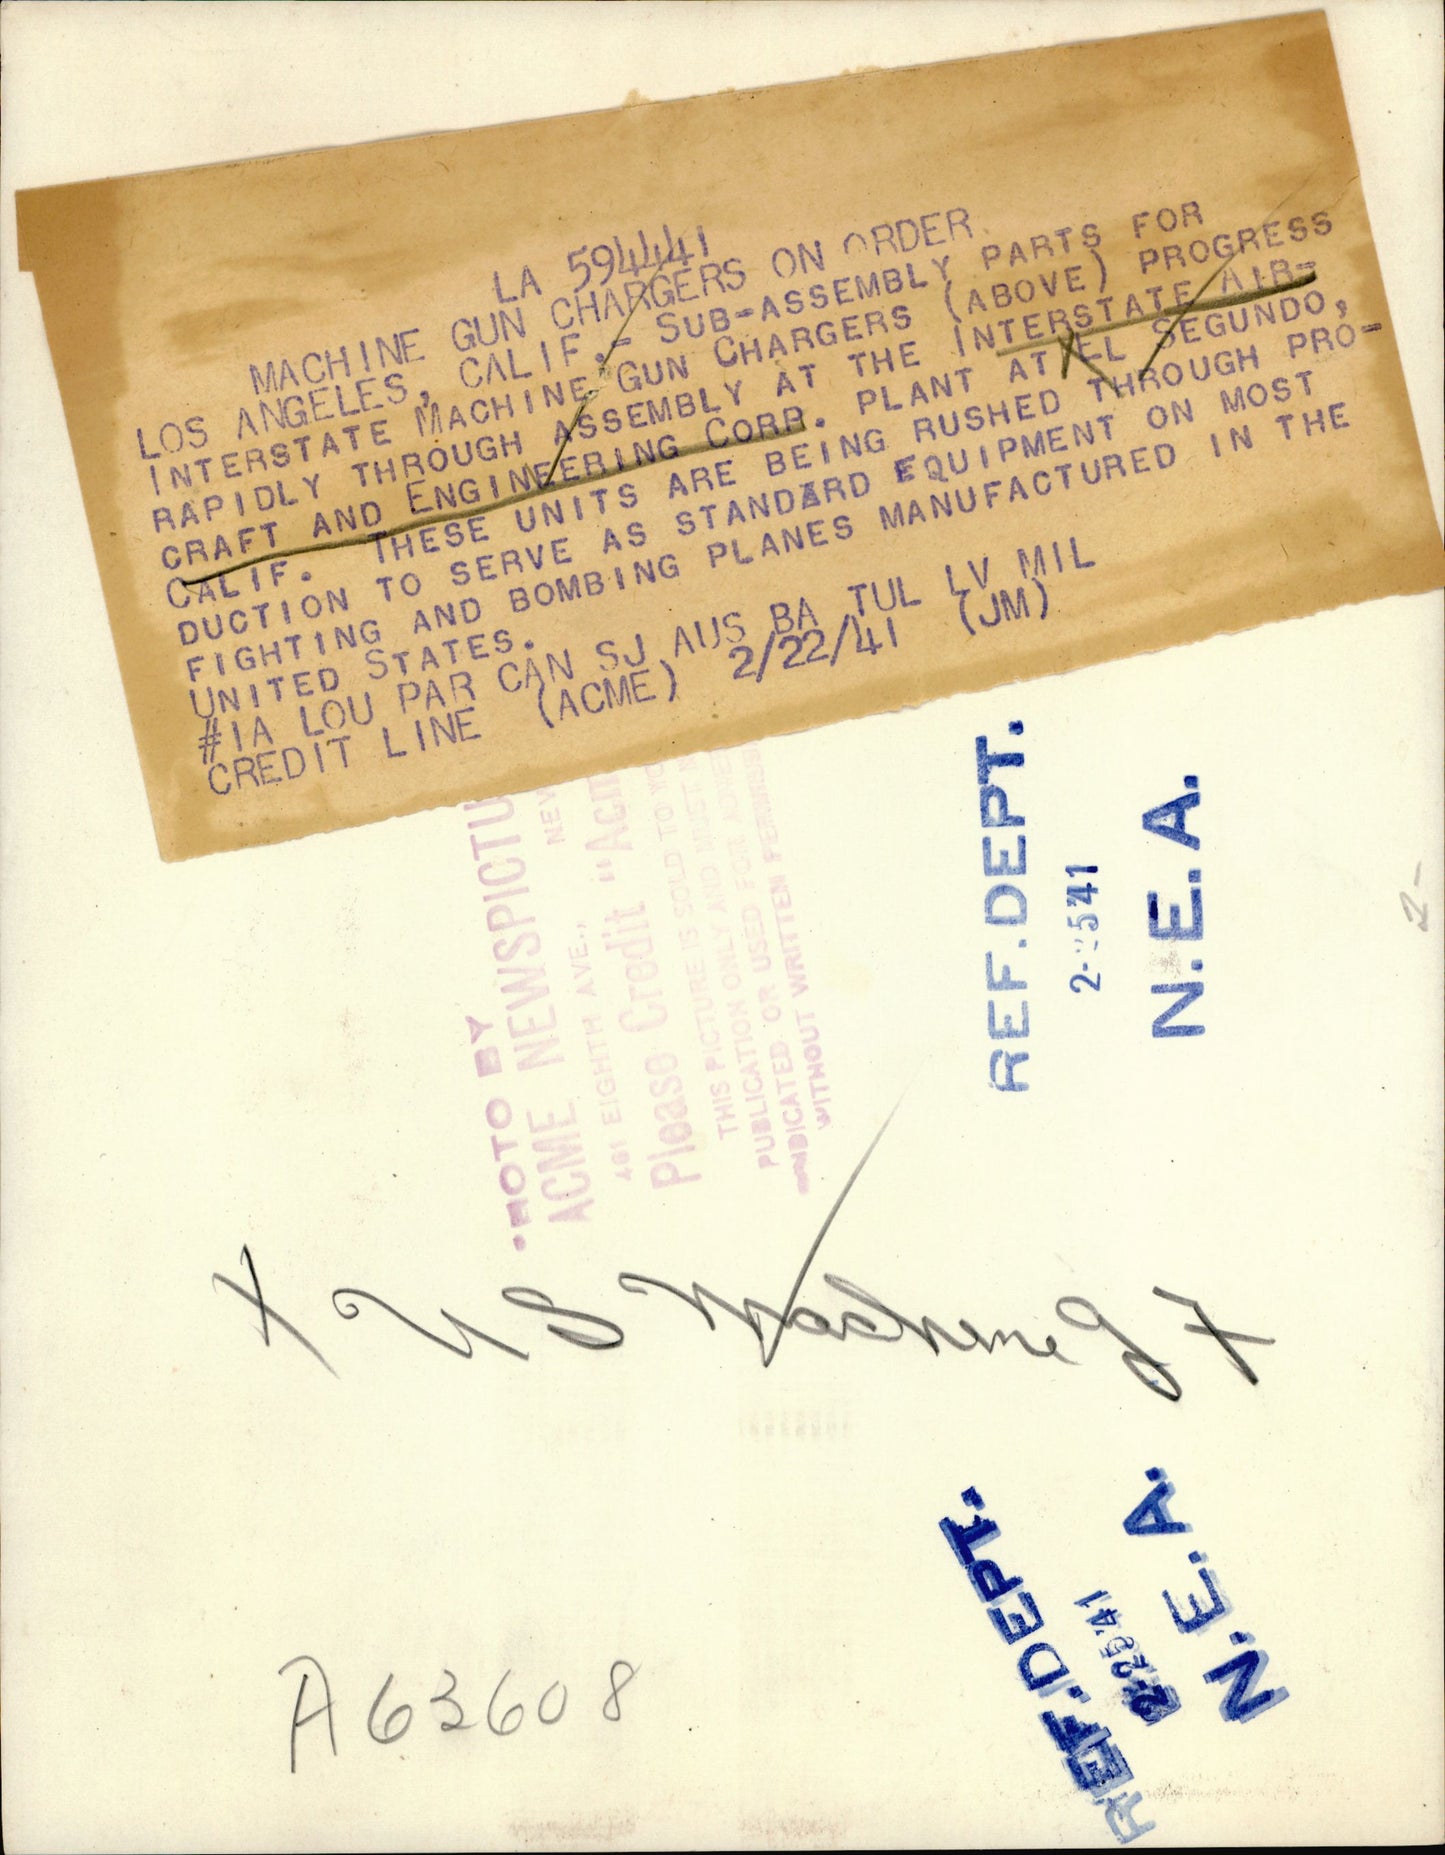 LA 594441
MACHINE GUN CHARGERS ON ORDER
LOS ANGELES, CALIF.- SUB-ASSEMBLY PARTS FOR
INTERSTATE MACHINE GUN CHARGERS (ABOVE) PROGRESS
RAPIDLY THROUGH ASSEMBLY AT THE INTERSTATE AIR-
CRAFT AND ENGINEERING CORP. PLANT AT EL SEGUNDO,
CALIF. THESE UNITS ARE BEING RUSHED THROUGH PRO-
DUCTION TO SERVE AS STANDARD EQUIPMENT ON MOST
FIGHTING AND BOMBING PLANES MANUFACTURED IN THE
UNITED STATES.
#IA LOU PAR CAN SJ AUS BA TUL LV MIL
CREDIT LINE (ACME) 2/22/41 (JM)
PHOTO BY
ACME NEWSPICTU
461 EIGHTH AVE., NEW
Please Credit "Acm
THIS PICTURE IS SOLD TO YO
PUBLICATION ONLY AND MUST N
SYNDICATED OR USED FOR ADVE
WITHOUT WRITTEN PERMISS
REF. DEPT.
2-2541
N. E. A.
X US Machine g F
REF. DEPT.
2-2541
N. E. A.
A63608
2-